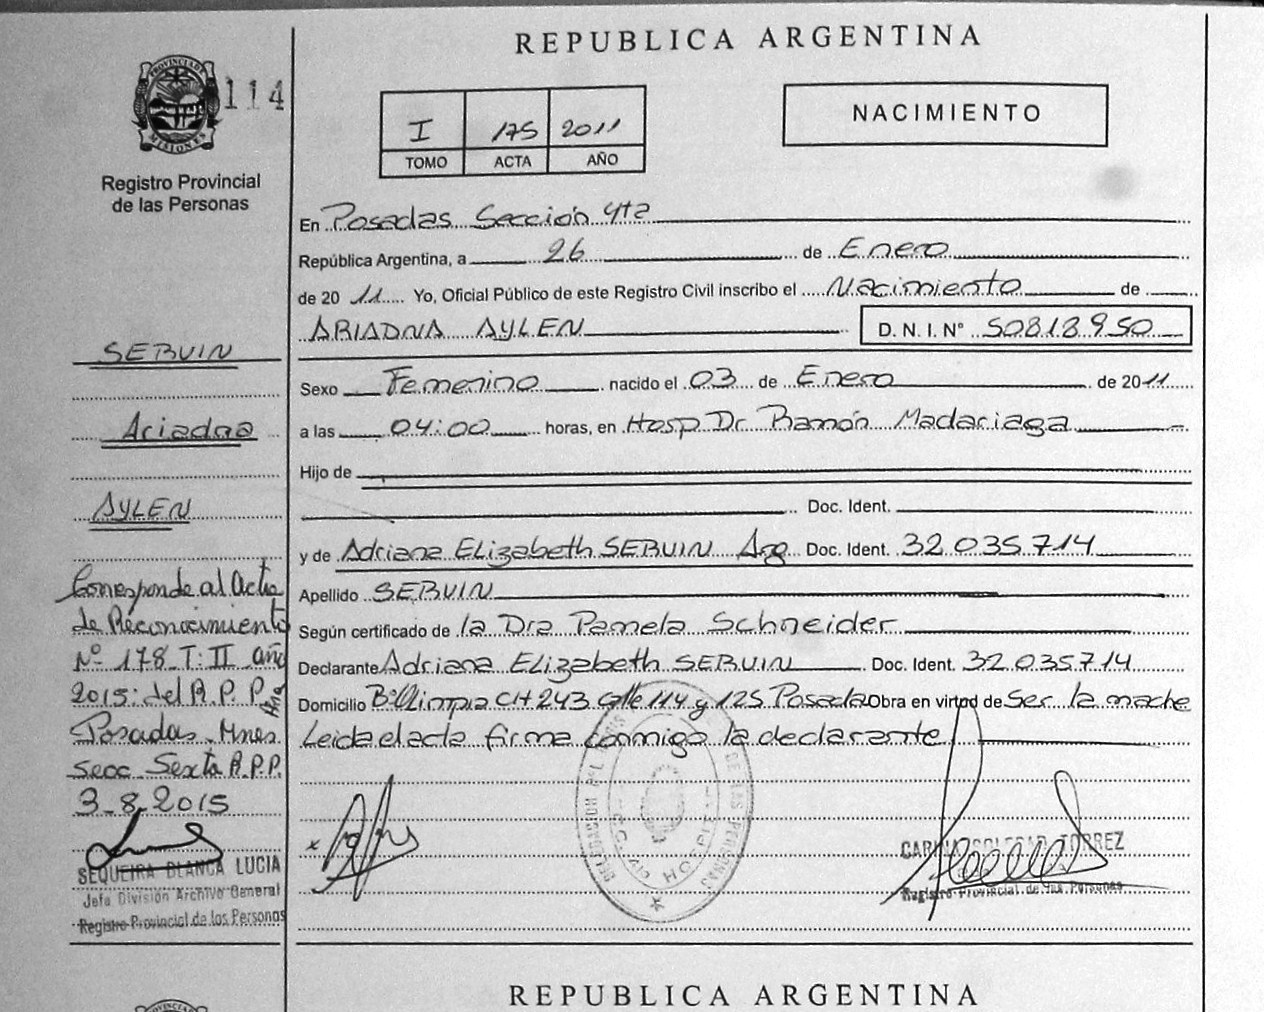 REPUBLICA ARGENTINA
PROVINCIA DE MISIONES
114
Registro Provincial
de las Personas
I 175 2011
TOMO ACTA AÑO
NACIMIENTO
En Posadas Sección 4ta
República Argentina, a 26 de Enero
de 2011 Yo, Oficial Público de este Registro Civil inscribo el Nacimiento de
ARIADNA AYLEN D. N. I. N° 50818950
Sexo Femenino nacido el 03 de Enero de 2011
a las 04:00 horas, en Hosp Dr. Ramón Madariaga
Hijo de
Doc. Ident.
y de Adriana Elizabeth SEBUIN Arg Doc. Ident. 32.035.714
Apellido SEBUIN
Según certificado de la Dra Pamela Schneider
Declarante Adriana Elizabeth SEBUIN Doc. Ident. 32.035.714
Domicilio B° Olimpia CH 243 Calle 114 y 125 Posadas Obra en virtud de Ser la madre
Leida el acta firma conmigo la declarante
SEBUIN
Ariadna
AYLEN
Corresponde al Acta
de Reconocimiento
N° 178 T: II año
2015: del R.P.P.
Posadas Mnes
Secc. Sexta R.P.P.
3-8-2015
SEQUEIRA BLANCA LUCIA
Jefa División Archivo General
Registro Provincial de las Personas
DE LAS PERSONAS
HOSPIT
CARINA SOLEDAD TORREZ
Registro Provincial de las Personas
REPUBLICA ARGENTINA
PROVINCIA